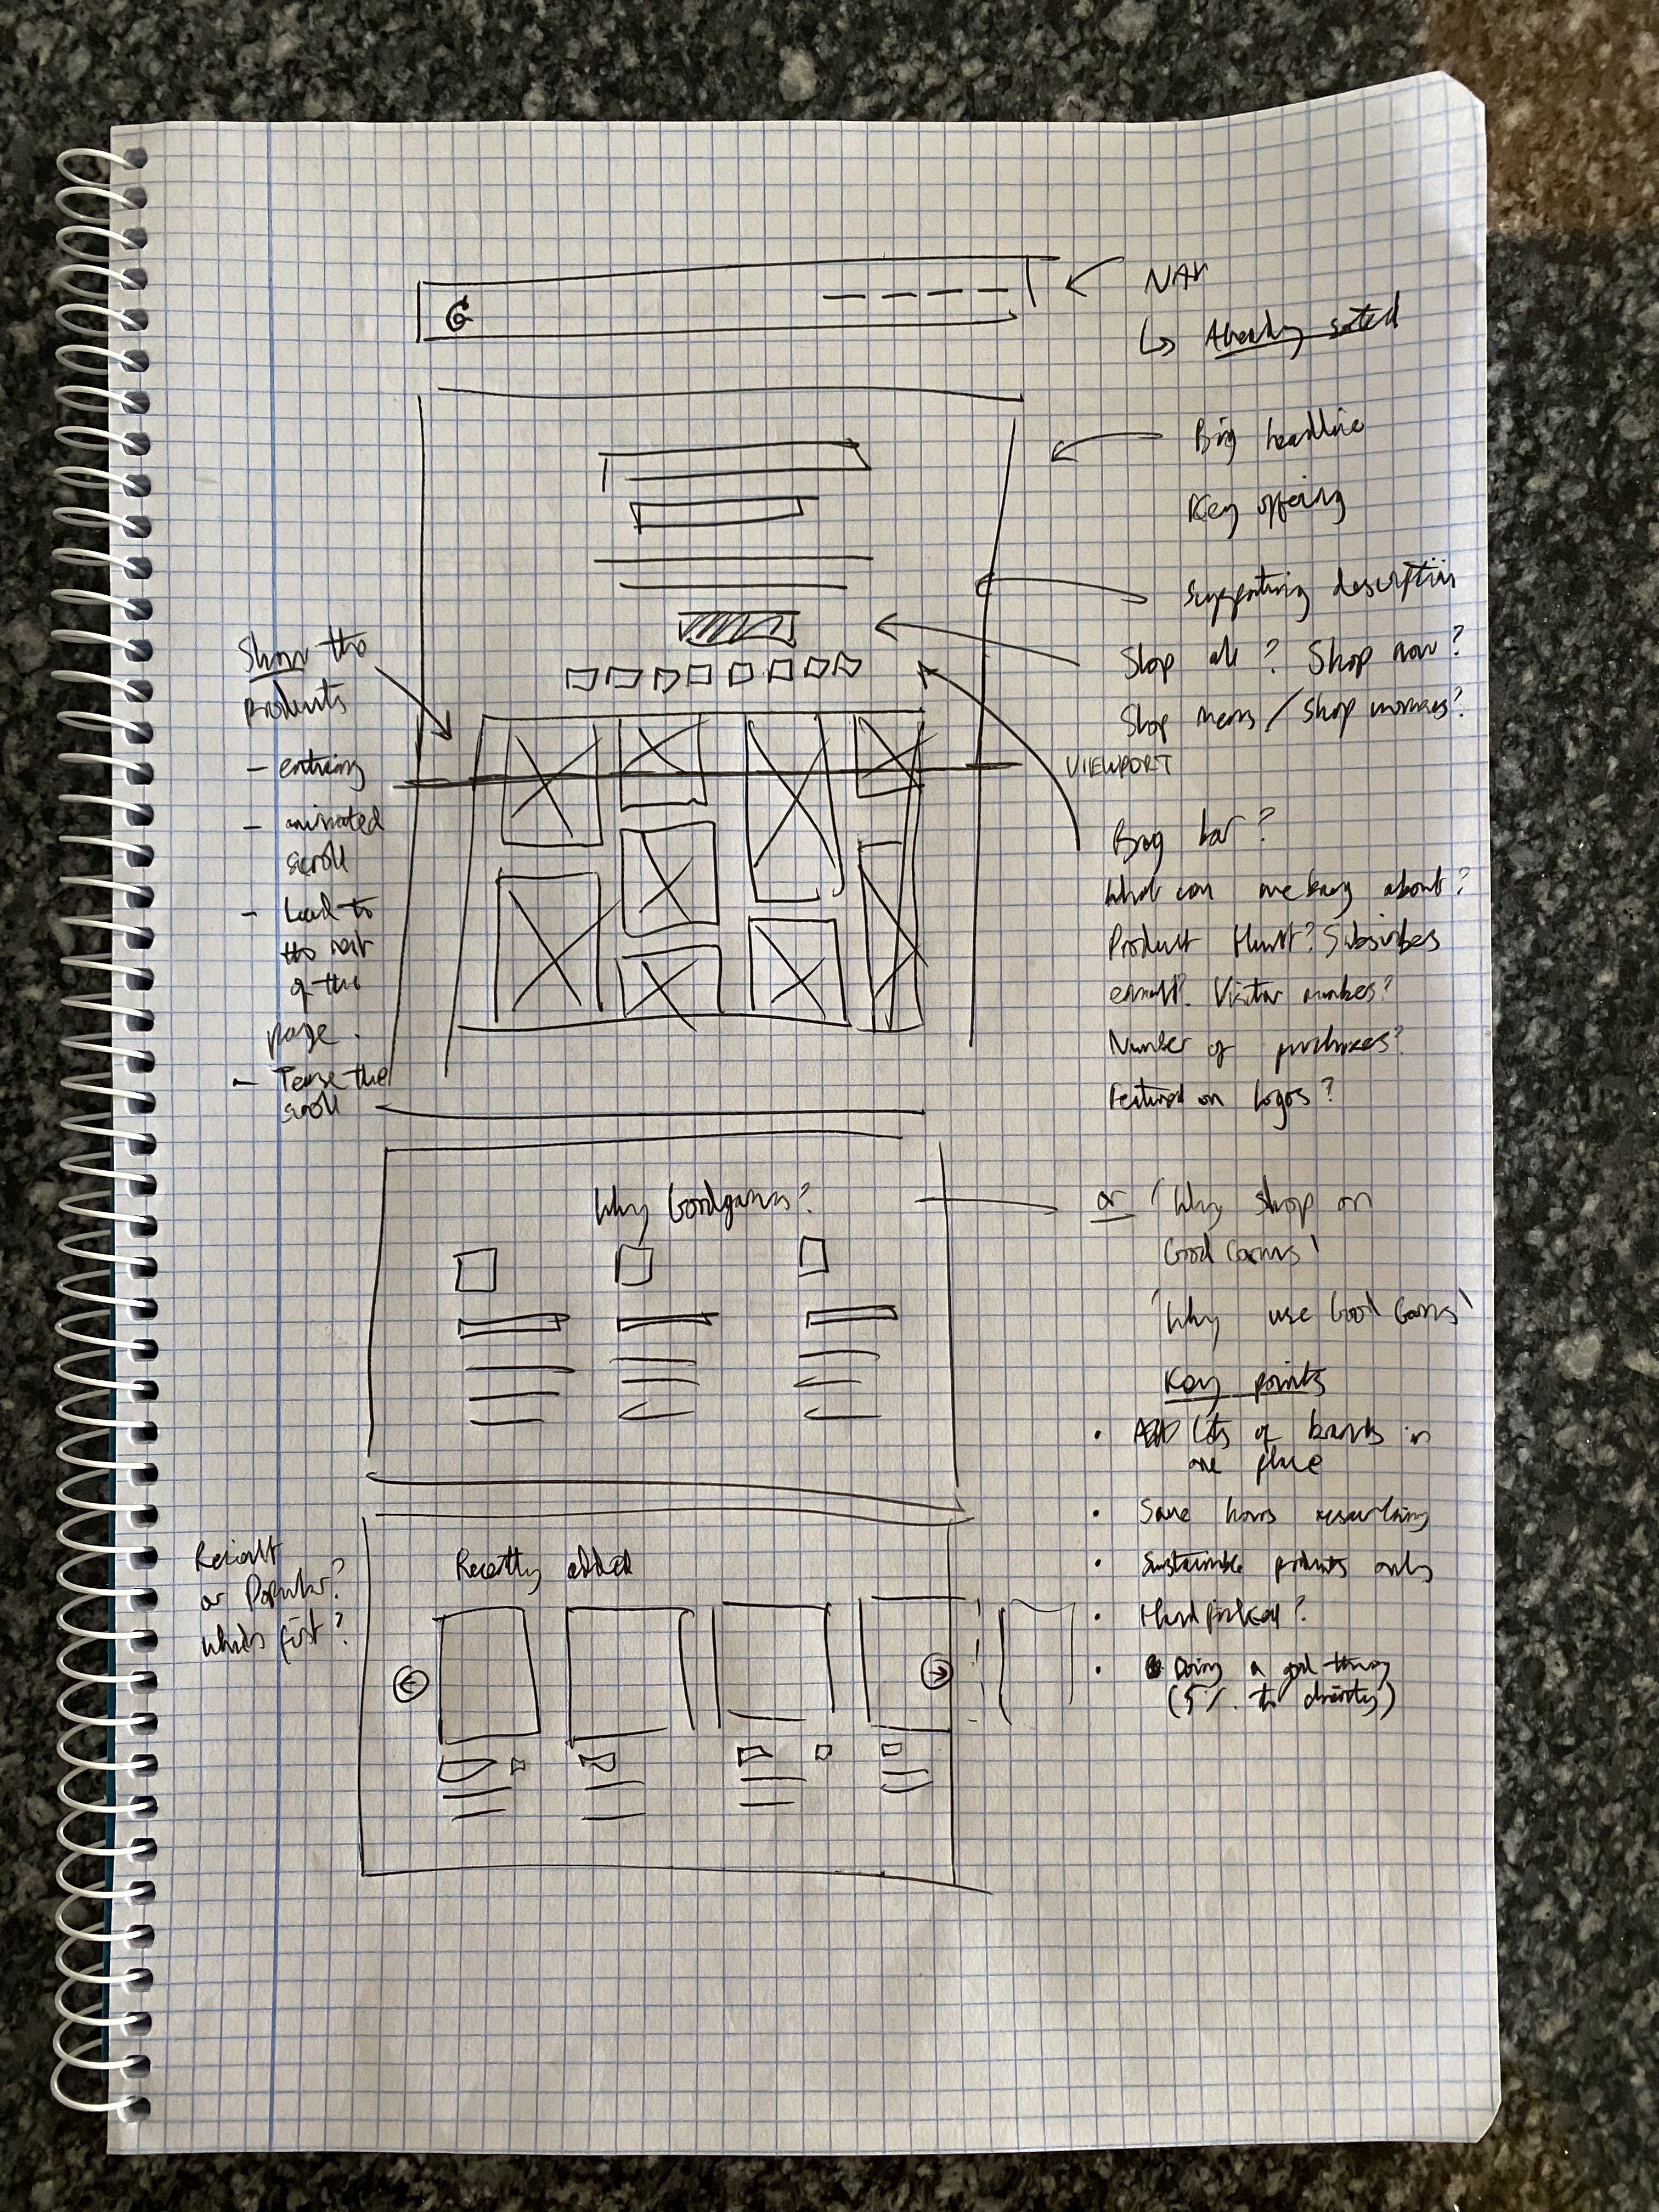 G
NAV
↳ Already sorted
Big headline
Key offering
Supporting description
Shop all? Shop now?
Shop mens / Shop womens?
VIEWPORT
Show the
Products
- enticing
- animated
scroll
- Lead to
the rest
of the
page.
- Tease the
scroll
Brag bar?
What can we brag about?
Product Hunt? Subscribes
email? Visitor numbers?
Number of purchases?
Featured on logos?
Why Goodgarms?
or 'Why shop on
Good Garms'
'Why use Good Garms'
Key points
• Lots of brands in
one place
• Save hours researching
• Sustainable products only
• Hand picked?
• Doing a good thing
(5% to charity)
Recent
or Popular?
which first?
Recently added